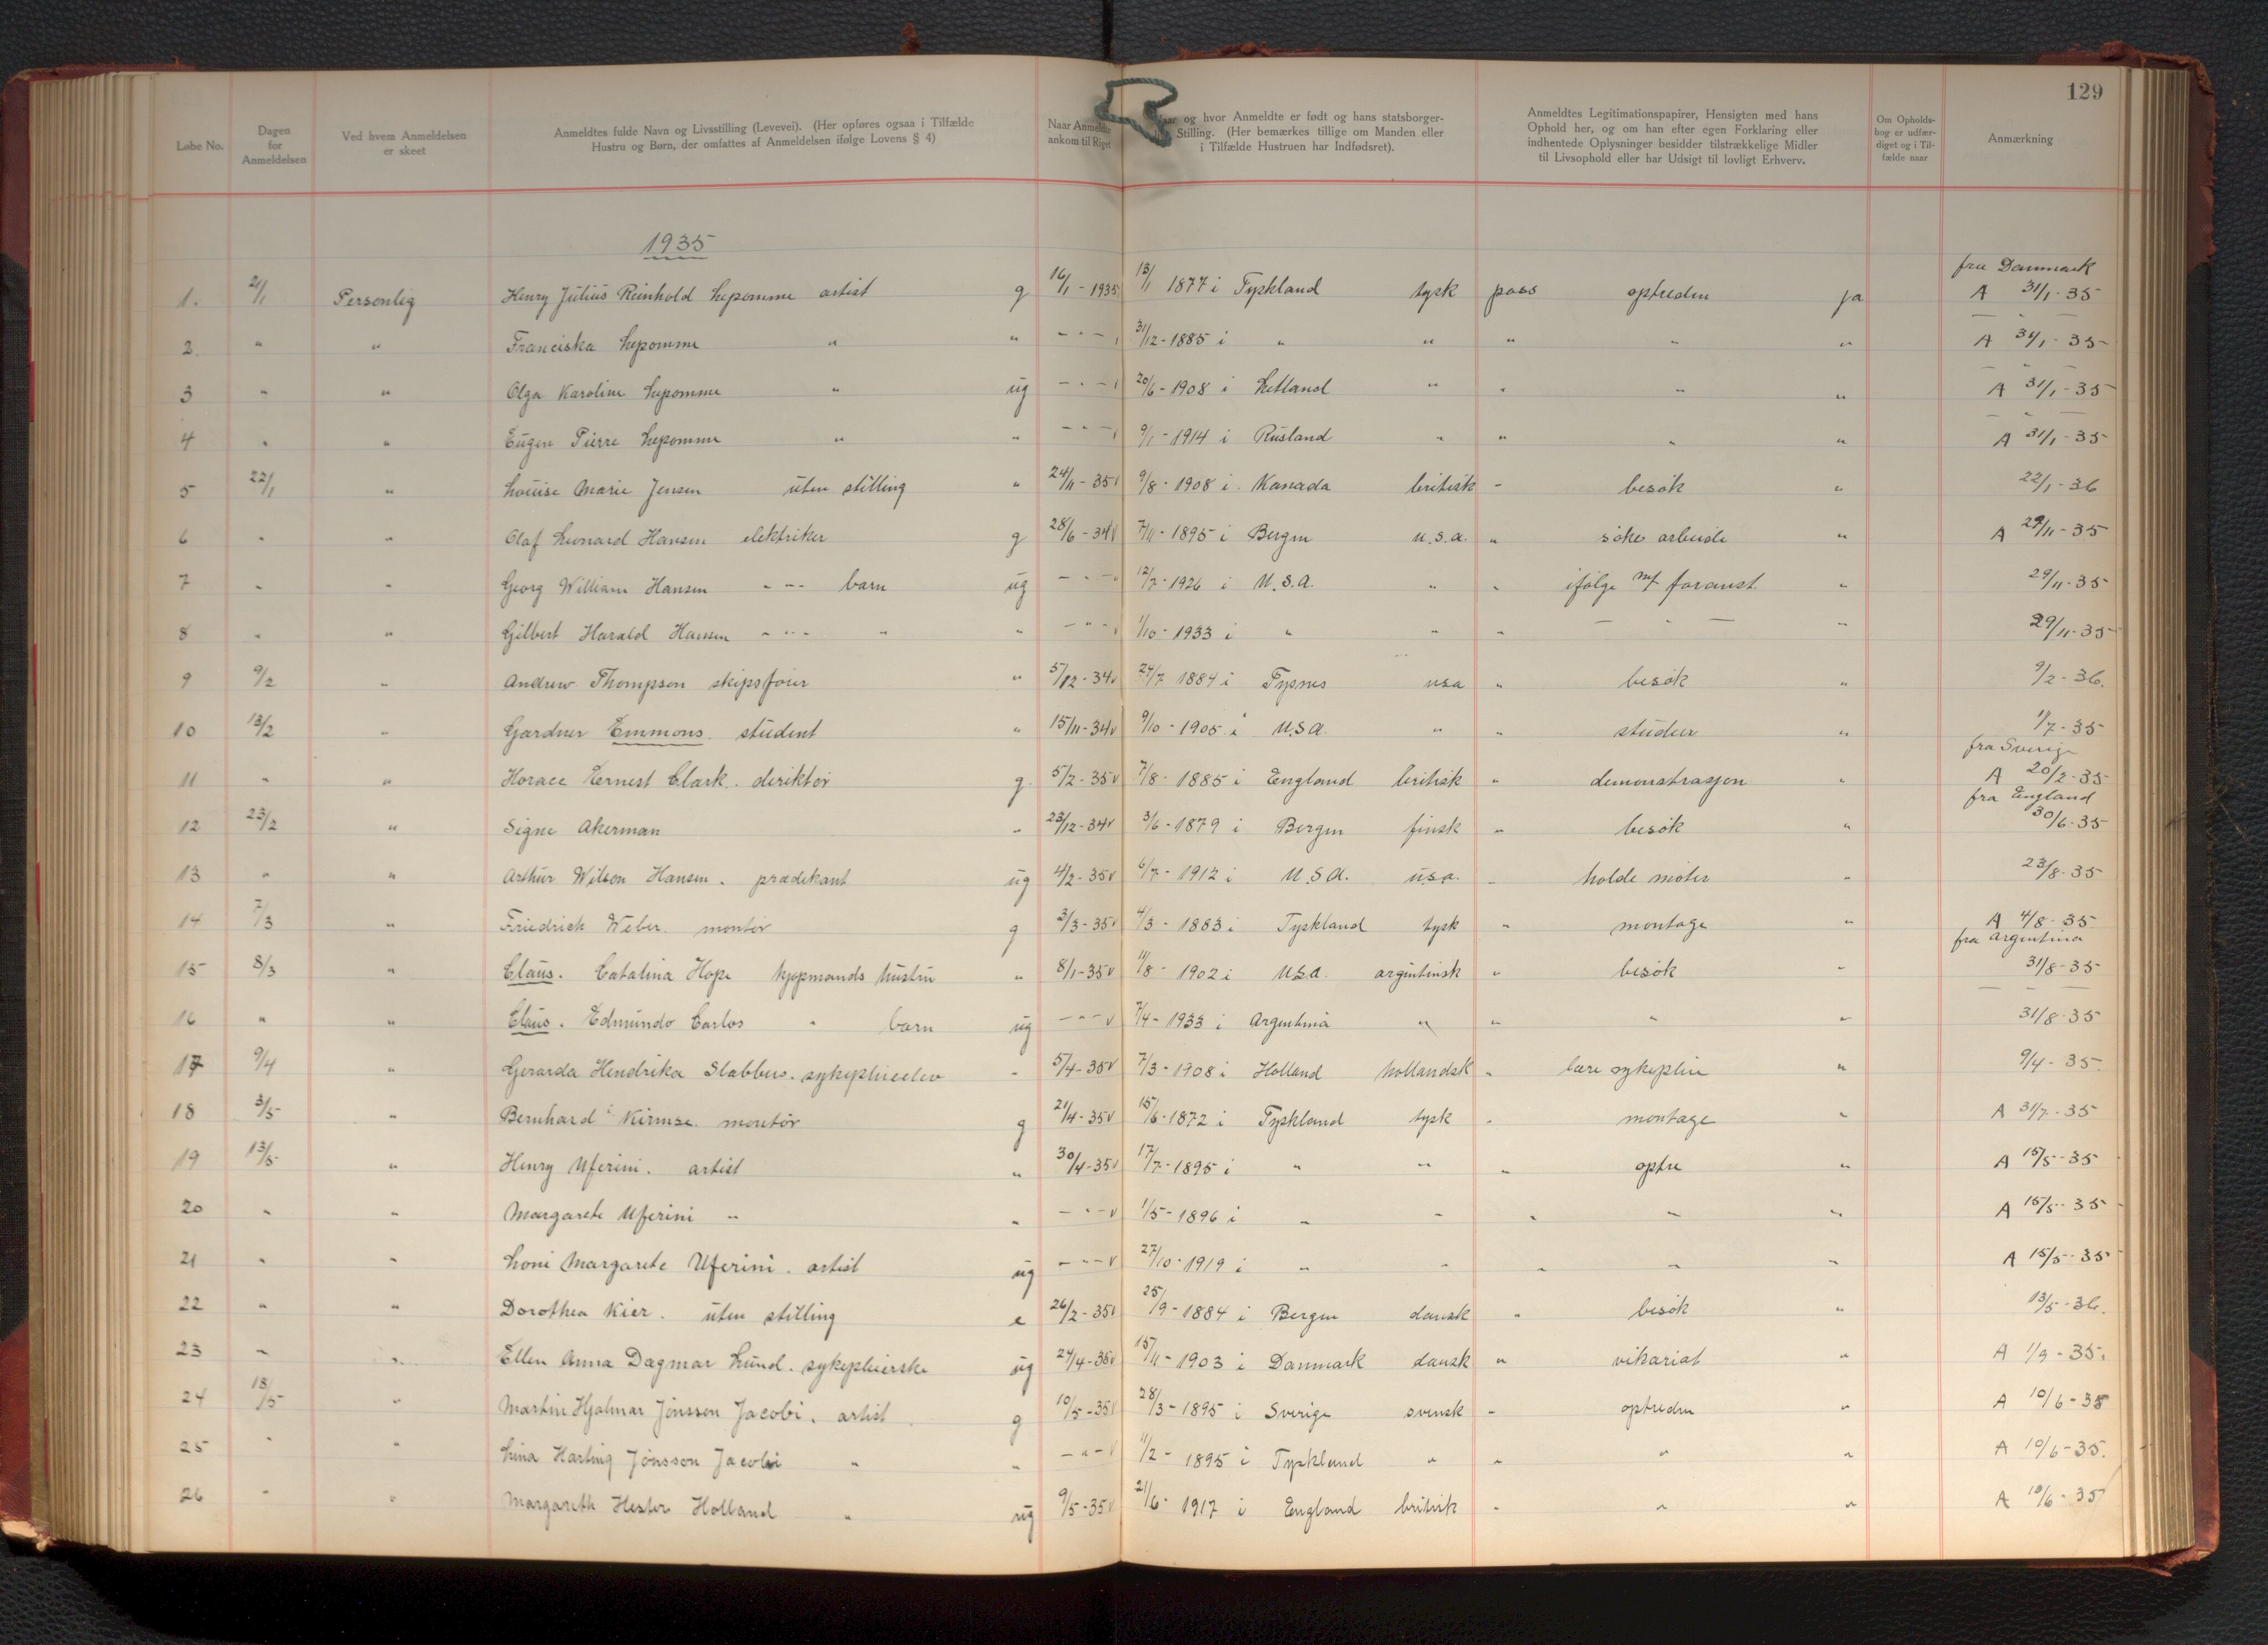 129
Løbe No.
Dagen for Anmeldelsen
Ved hvem Anmeldelsen er skeet
Anmeldtes fulde Navn og Livsstilling (Levevei). (Her opføres ogsaa i Tilfælde Hustru og Børn, der omfattes af Anmeldelsen ifølge Lovens § 4)
Naar Anmeldte ankom til Riget
og hvor Anmeldte er født og hans statsborger- Stilling. (Her bemærkes tillige om Manden eller i Tilfælde Hustruen har Indfødsret).
Anmeldtes Legitimationspapirer, Hensigten med hans Ophold her, og om han efter egen Forklaring eller indhentede Oplysninger besidder tilstrækkelige Midler til Livsophold eller har Udsigt til lovligt Erhverv.
Om Opholds- bog er udfær- diget og i Til- fælde naar
Anmærkning
1935
fra Danmark
1. 21/1 Personlig Henry Julius Reinhold Lepomme artist g 16/1 - 1935 13/1 1877 i Tyskland tysk pass optreden ja A 31/1-35
2. " " Franciska Lepomme " " - " - 31/12-1885 i " " " " " A 31/1-35
3 " " Olga Karoline Lepomme " ug - " - 20/6-1908 i Letland " " " " A 31/1-35
4 " " Eugen Pierre Lepomme " " - " - 9/1-1914 i Rusland " " " " A 31/1-35
5 22/1 " Louise Marie Jensen uten stilling " 24/11-35 9/8-1908 i Kanada britisk " besøk " 22/1-36
6 " " Olaf Leonard Hansen elektriker g 28/6-34 7/11-1895 i Bergen u.s.a. " søke arbeide " A 29/11-35
7 " " Georg William Hansen - " - barn ug - " - 12/7-1926 i U.S.A. " " ifølge m/ foranst. " 29/11-35
8 " " Gilbert Harald Hansen - " - " " - " - 1/10-1933 i " " " - " - " 29/11-35
9 9/2 " Andrew Thompson skipsfører " 5/12-34 24/7 1884 i Tysnes usa " besøk " 9/2-36.
10 13/2 " Gardner Emmons. student " 15/11-34 9/10-1905 i U.S.A. " " studier " 1/7-35
fra Sverige
11 " " Horace Ernest Clark. direktør g. 5/2-35 7/8-1885 i England britisk " demonstrasjon " A 20/2-35
fra England
12 23/2 " Signe Akerman " 23/12-34 3/6-1879 i Bergen finsk " besøk " 30/6-35
13 " " Arthur Wilson Hansen. prædikant ug 4/2-35 6/7-1912 i U.S.A. u.s.a. " holde møter " 23/8-35
14 7/3 " Friedrich Weber. montør g 3/3-35 4/3-1883 i Tyskland tysk " montage " A 4/8-35
fra Argentina
15 8/3 " Claus. Catalina Hope kjøpmands hustru " 8/1-35 11/8-1902 i U.S.A. argentinsk " besøk " 31/8-35
16 " " Claus. Edmundo Carlos " barn ug - " - 7/4-1933 i Argentina " " " " 31/8-35
17 9/4 " Gerarda Hendrika Slabbers. sykepleieelev " 5/4-35 7/3-1908 i Holland hollandsk " lære sykepleie " 9/4-35.
18 3/5 " Bernhard Kirmse. montør g 21/4-35 15/6-1872 i Tyskland tysk " montage " A 31/7-35
19 13/5 " Henry Uferini. artist " 30/4-35 17/7-1895 i " " " optre " A 15/5-35
20 " " Margarete Uferini " " - " - 1/5-1896 i " " " " " A 15/5-35
21 " " Loni Margarete Uferini. artist ug - " - 27/10-1919 i " " " " " A 15/5-35
22 " " Dorothea Kier. uten stilling e 26/2-35 25/9-1884 i Bergen dansk " besøk " 13/5-36.
23 " " Ellen Anna Dagmar Lund. sykepleierske ug 24/4-35 15/11-1903 i Danmark dansk " vikariat " A 1/9-35.
24 18/5 " Martin Hjalmar Jönsson Jacobi. artist. g 10/5-35 28/3-1895 i Sverige svensk " optreden " A 10/6-35
25 " " Lina Harting Jönsson Jacobi " " - " - 11/2-1895 i Tyskland " " " " A 10/6-35.
26 " " Margareth Hester Holland " ug 9/5-35 21/6-1917 i England britisk " " " A 10/6-35